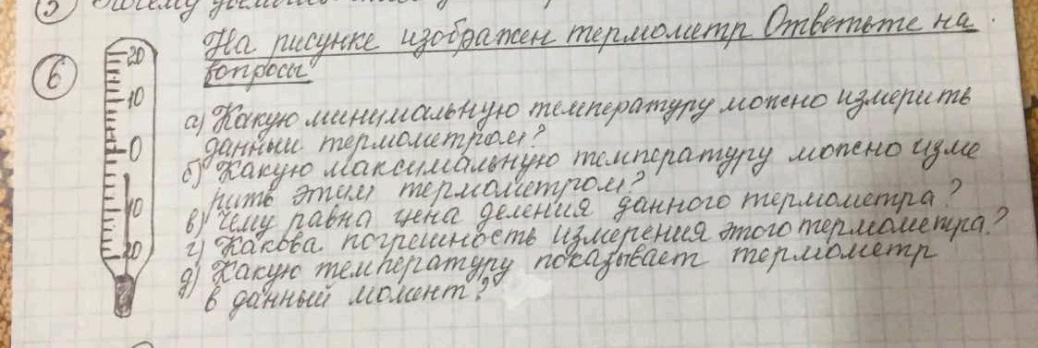 5) Почему
На рисунке изображен термометр Ответьте на
6 вопросы
20
10
0
10
20
а) Какую минимальную температуру можно измерить
данным термометром?
б) Какую максимальную температуру можно изме
рить этим термометром?
в) Чему равна цена деления данного термометра?
г) Какова погрешность измерения этого термометра?
д) Какую температуру показывает термометр
в данный момент?